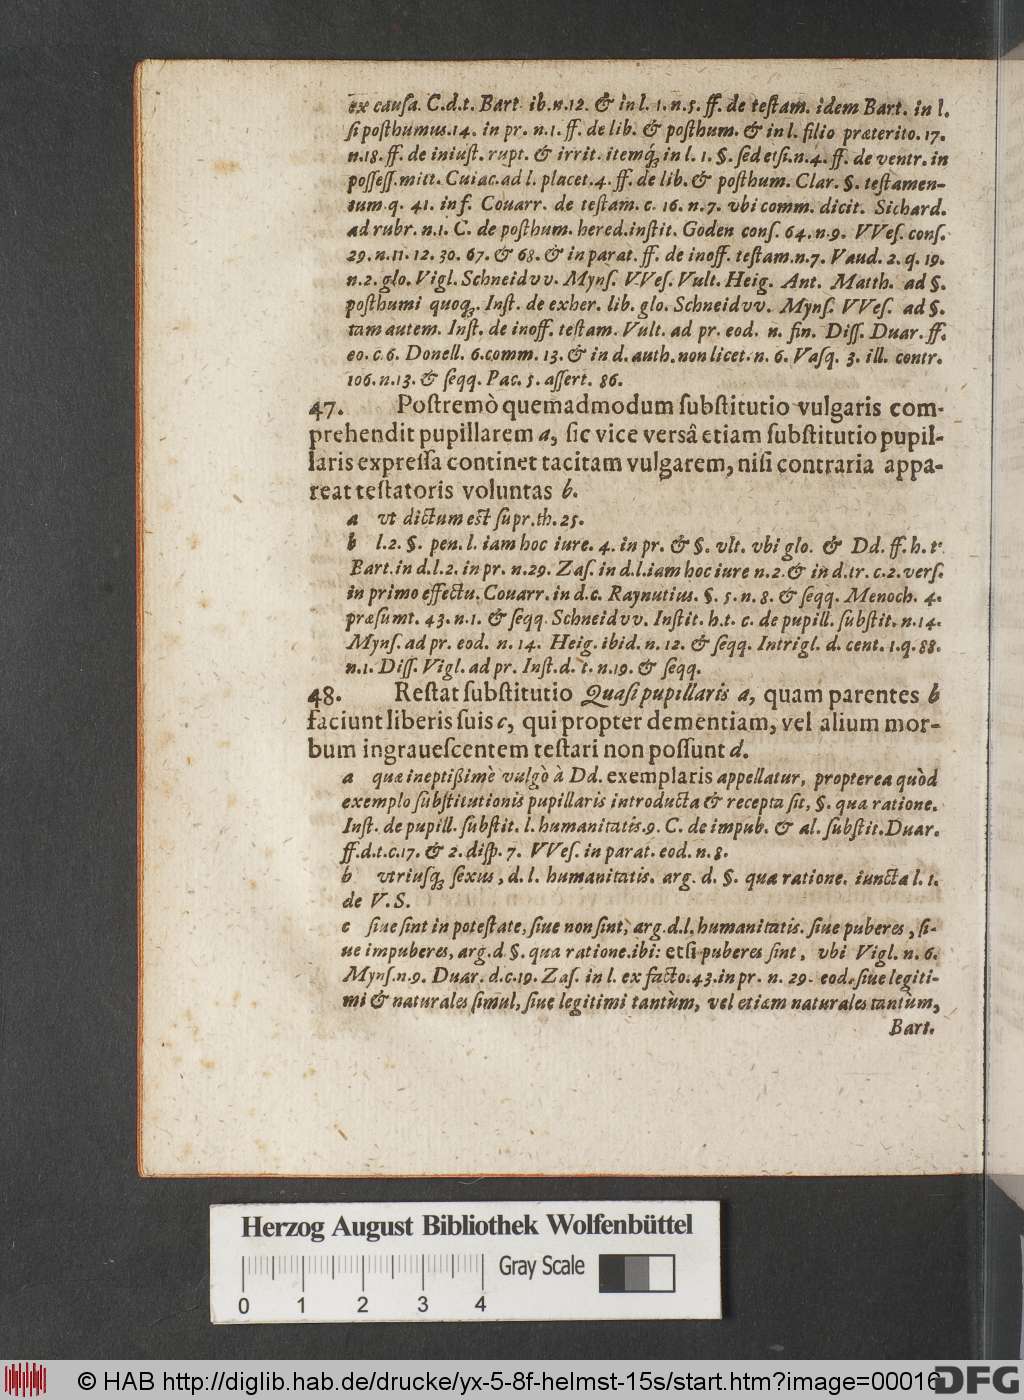 ex cauſa. C.d.t. Bart. ib.n.12. & in l. 1. n.5. ff. de teſtam. idem Bart. in l.
ſi poſthumus.14. in pr. n.1. ff. de lib. & poſthum. & in l. filio præterito. 17.
n.18. ff. de iniuſt. rupt. & irrit. itemq́ꝫ in l. 1. §. ſed etſi.n.4. ff. de ventr. in
poſſeſſ.mitt. Cuiac. ad l. placet.4. ff. de lib. & poſthum. Clar. §. teſtamen-
tum.q. 41. inf. Couarr. de teſtam. c. 16. n.7. vbi comm. dicit. Sichard.
ad rubr. n.1. C. de poſthum. hered.inſtit. Goden conſ. 64. n.9. VVeſ. conſ.
29. n.11. 12. 30. 67. & 68. & in parat. ff. de inoff. teſtam.n.7. Vaud. 2. q. 19.
n.2. glo. Vigl. Schneidvv. Mynſ. VVeſ. Vult. Heig. Ant. Matth. ad §.
poſthumi quoqꝫ. Inſt. de exher. lib. glo. Schneidvv. Mynſ. VVeſ. ad §.
tam autem. Inſt. de inoff. teſtam. Vult. ad pr. eod. n. fin. Diſſ. Duar. ff.
eo. c.6. Donell. 6.comm. 13. & in d. auth. non licet. n. 6. Vaſq. 3. ill. contr.
106. n.13. & ſeqq. Pac. 5. aſſert. 86.
47. Poſtremò quemadmodum ſubſtitutio vulgaris com-
prehendit pupillarem a, ſic vice versâ etiam ſubſtitutio pupil-
laris expreſſa continet tacitam vulgarem, niſi contraria appa-
reat teſtatoris voluntas b.
a vt dictum eſt ſupr.th. 25.
b l.2. §. pen. l. iam hoc iure. 4. in pr. & §. vlt. vbi glo. & Dd. ff. h. t.
Bart. in d.l.2. in pr. n.29. Zaſ. in d.l.iam hoc iure n.2. & in d.tr. c.2. verſ.
in primo effectu. Couarr. in d.c. Raynutius. §. 5. n. 8. & ſeqq. Menoch. 4.
præſumt. 43. n.1. & ſeqq. Schneidvv. Inſtit. h.t. c. de pupill. ſubſtit. n.14.
Mynſ. ad pr. eod. n. 14. Heig. ibid. n. 12. & ſeqq. Intrigl. d. cent. 1.q. 88.
n.1. Diſſ. Vigl. ad pr. Inſt.d. t. n.19. & ſeqq.
48. Reſtat ſubſtitutio Quaſi pupillaris a, quam parentes b
faciunt liberis ſuis c, qui propter dementiam, vel alium mor-
bum ingraueſcentem teſtari non poſſunt d.
a quæ ineptißimè vulgò à Dd. exemplaris appellatur, propterea quòd
exemplo ſubſtitutionis pupillaris introducta & recepta ſit, §. qua ratione.
Inſt. de pupill. ſubſtit. l. humanitatis.9. C. de impub. & al. ſubſtit. Duar.
ff.d.t.c.17. & 2. diſp. 7. VVeſ. in parat. eod. n. 8.
b vtriuſqꝫ ſexus, d. l. humanitatis. arg. d. §. qua ratione. iuncta l. 1.
de V. S.
c ſiue ſint in poteſtate, ſiue non ſint, arg.d.l. humanitatis. ſiue puberes, ſi-
ue impuberes, arg.d §. qua ratione.ibi: etſi puberes ſint, vbi Vigl. n. 6.
Mynſ.n.9. Duar. d.c.19. Zaſ. in l. ex facto.43.in pr. n. 29. eod. ſiue legiti-
mi & naturales ſimul, ſiue legitimi tantùm, vel etiam naturales tantùm,
Bart.
Herzog August Bibliothek Wolfenbüttel
0 1 2 3 4
Gray Scale
© HAB http://diglib.hab.de/drucke/yx-5-8f-helmst-15s/start.htm?image=00016
DFG